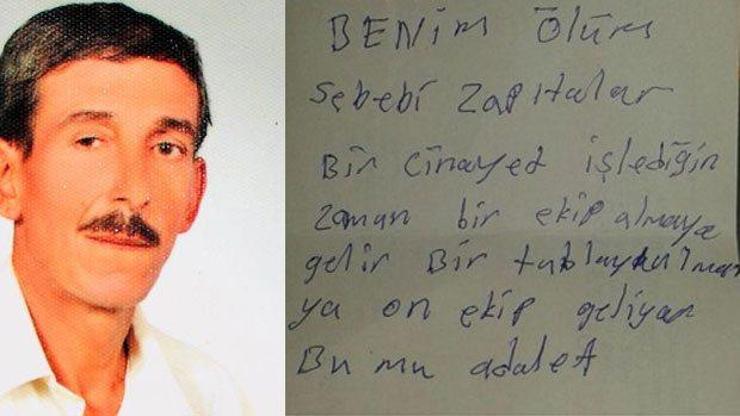 BENim ÖLÜm
Sebebi ZabıTalar
Bir Cinayed işlediğin
zaman bir ekip almaya
gelir Bir
ya on ekip geliyar
Bu mu adalet